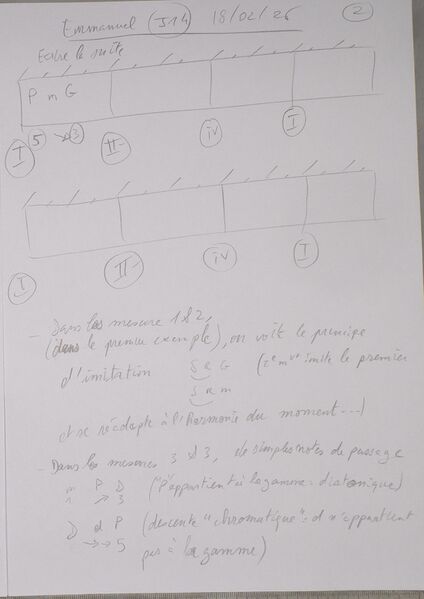 Emmanuel J14 18/02/26 2
Ecrire la suite
P m G
5 → 3
I II- iv I
I II- iv I
- Dans les mesures 1 & 2,
(dans le premier exemple), on voit le principe
d'imitation S R G (2e mve imite le premier
S R m
et se réadapte à l'harmonie du moment...)
- Dans les mesures 3 & 3, de simples notes de passage
m P D ("P" appartient à la gamme : diatonique)
1 → 3
D d P (descente "chromatique" : d n'appartient
→→ 5 pas à la gamme)